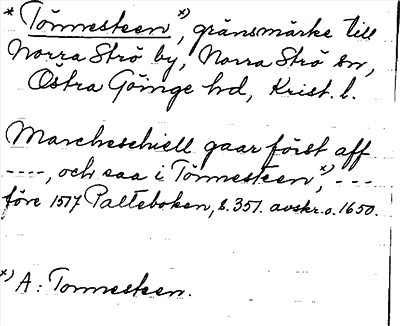 * Tönnesteen *), gränsmärke till
Norra Strö by, Norra Strö sn,
Östra Göinge hd, Krist. l.
Marcheschiell gaar först aff
----, och saa i Tönnesteen *), ---
före 1517 Palteboken, s. 351. avskr. o. 1650.
*) A: Tonnesteen.